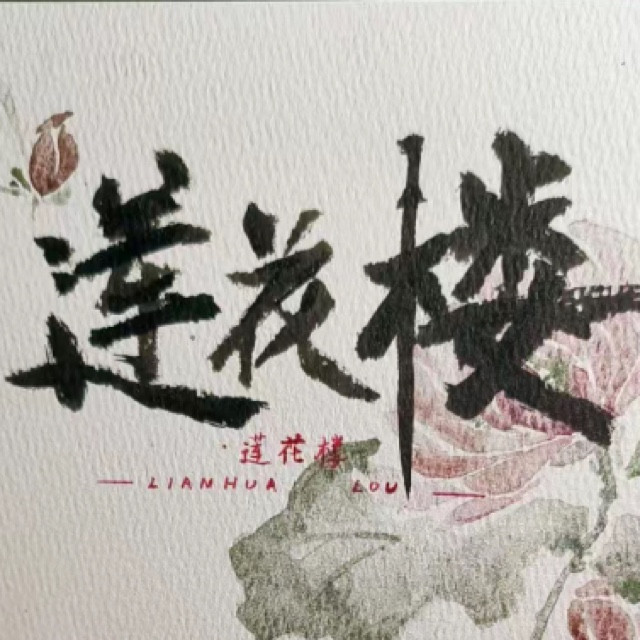 莲花楼
·莲花楼
LIANHUA LOU